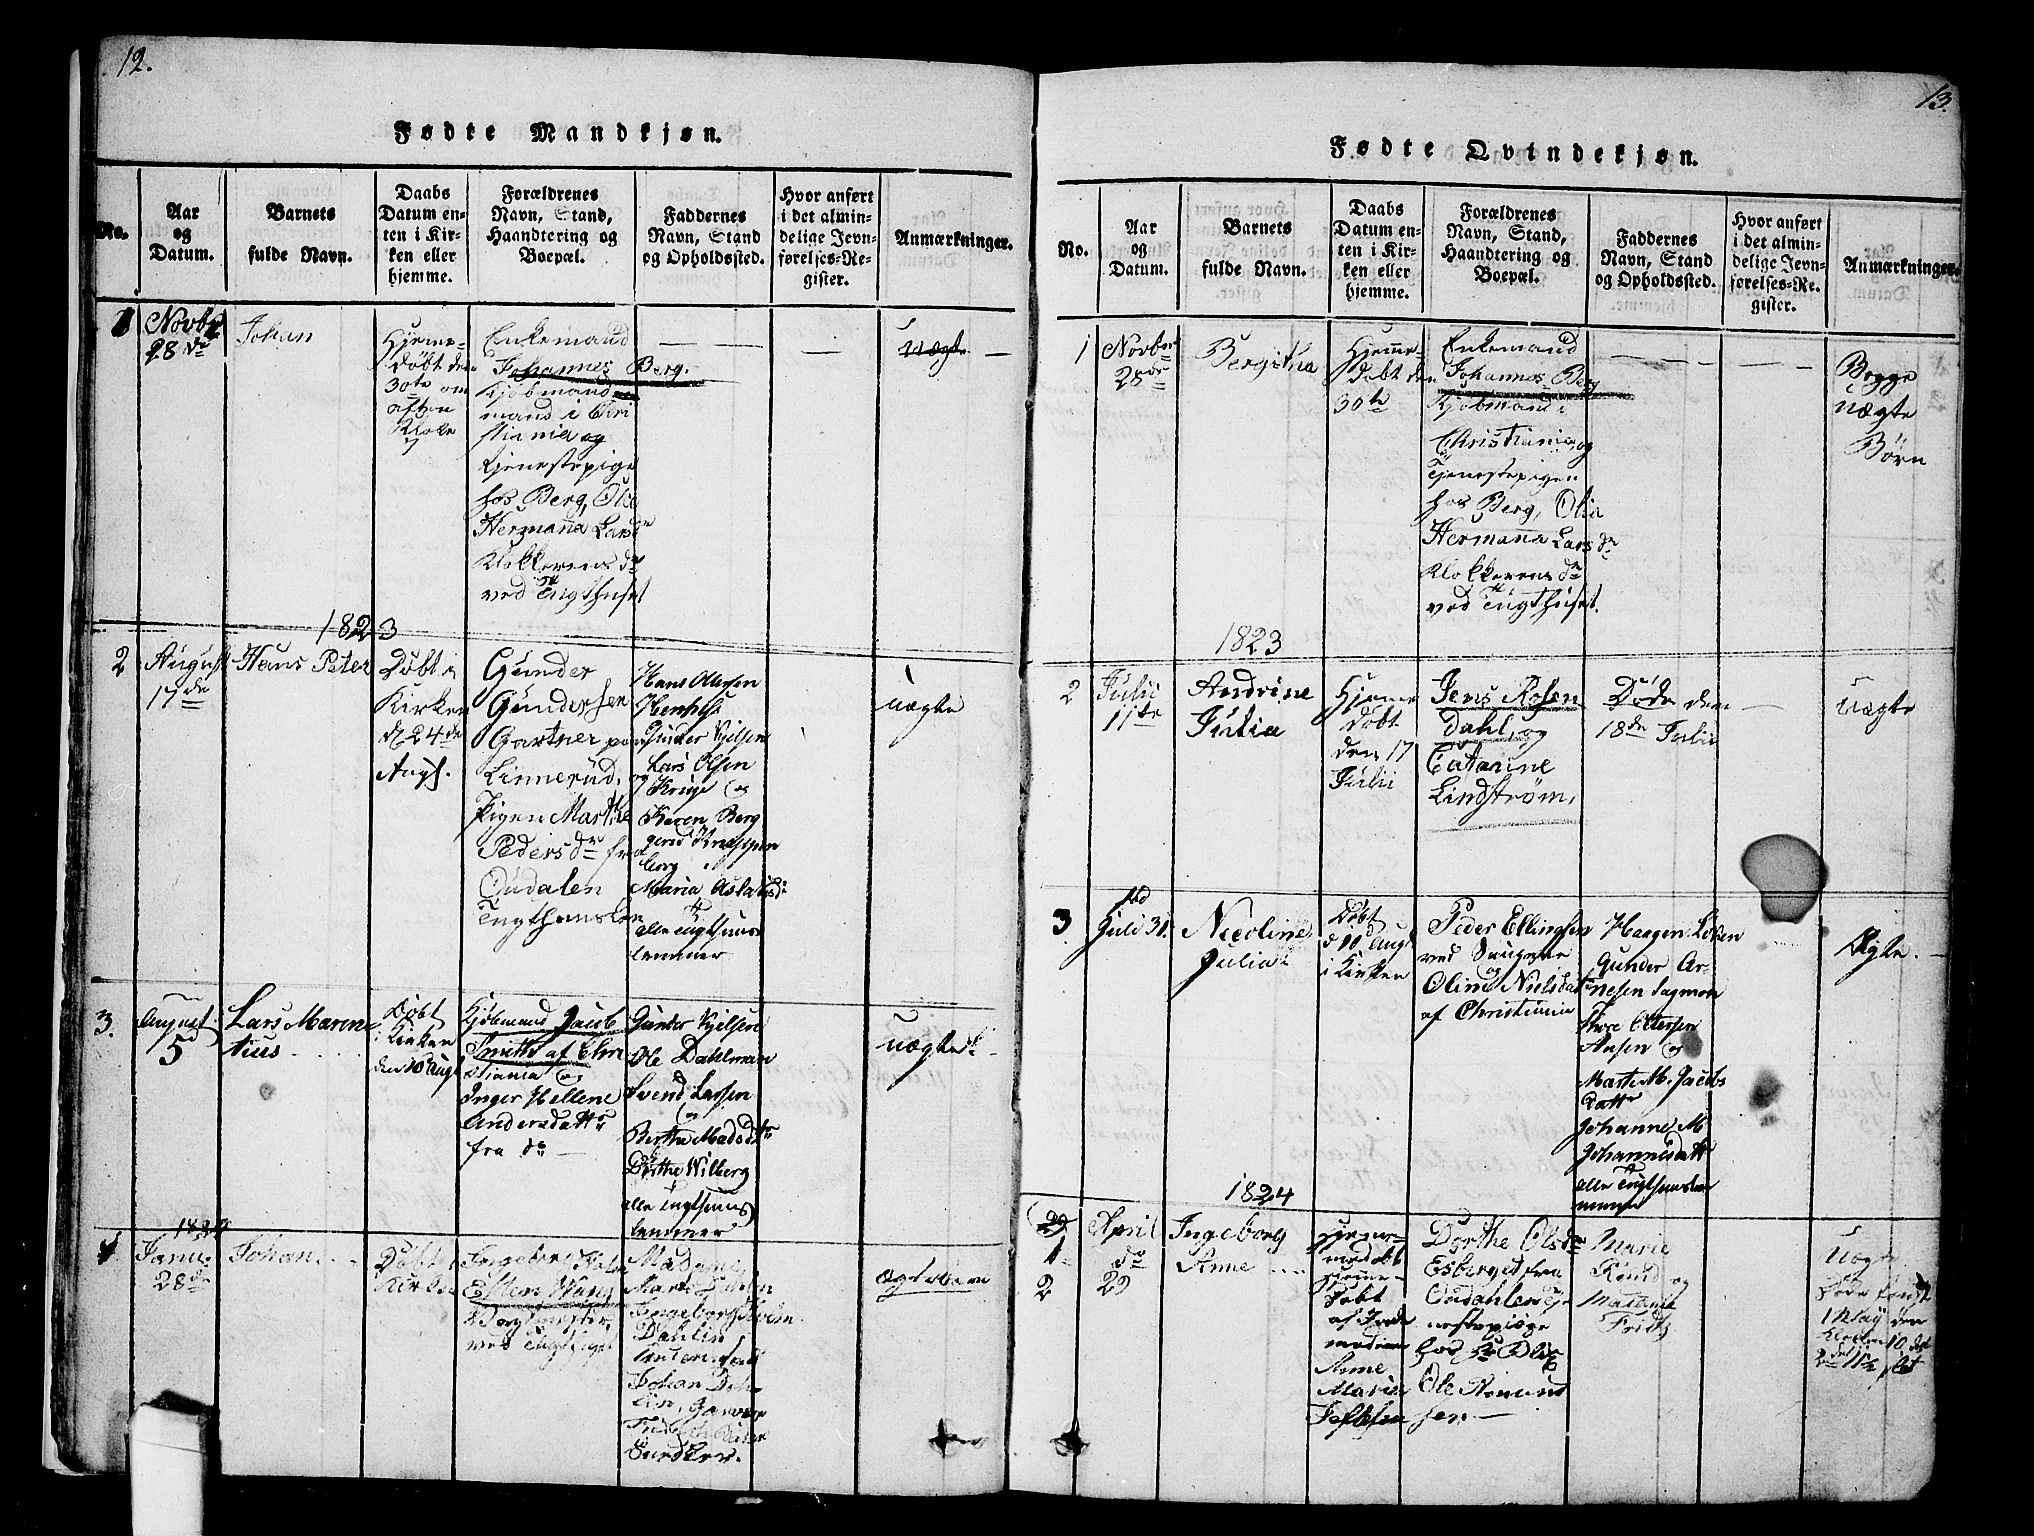 12.
Fødte Mandkjøn.
No.
Aar
og
Datum.
Barnets
fulde Navn.
Daabs
Datum en-
ten i Kir-
ken eller
hjemme.
Forældrenes
Navn, Stand,
Haandtering og
Boepæl.
Faddernes
Navn, Stand
og Opholdssted.
Hvor anført
i det almin-
delige Jevn-
førelses-Re-
gister.
Anmærkninger.
1
Novbr
28de
Johan
Hjemme-
døbt den
30te om
aften
Klokn
7
Enkemand
Johannes Berg.
Kjøbmand
mand i Chri
stiania og
tjenestepige
hos Berg, Olea
Hermana Lars
Klokkerens dr
ved Tugthuset
uægte
1823
2
August
17de
Hans Peter
Døbt i
Kirken
d 24de
Augs.
Gunder
Gundersen
Gartner paa
Linnerud, og
Pigen Marthe
Pedersdr fra
Oudalen
Tugthuuslem
Hans Olessen
Gunder Kjelsen
Lars Olsen
Krige og
Karen Berg
Maria Aslaksd
alle Tugthuus
lemmer
uægte
3.
August
5
Lars Maren
tius
Døbt
i Kirken
den 10 Aug
Kjøbmand Jacob
Smith af Chri
stiania og
Inger Hellene
Andersdattr
fra do
Gunder Kjelsen
Ole Dahlman
Svend Larsen
og
Berthe Madsdtr
Dorthe Wilberg
alle Tugthuus
lemmer
uægte
1824
4
Janu:
28de
Johan
Døbt i
Kirken
Ingeborg Holm
Esten Wang
ved Tugthuset
Madame
Marte Dahlin
Ingeborg Holm
Dahlin
Johan Dah-
lin,
Ægtebarn
13.
Fødte Qvindekjøn.
No.
Aar
og
Datum.
Barnets
fulde Navn.
Daabs
Datum en-
ten i Kir-
ken eller
hjemme.
Forældrenes
Navn, Stand,
Haandtering og
Boepæl.
Faddernes
Navn, Stand
og Opholdssted.
Hvor anført
i det almin-
delige Jevn-
førelses-Re-
gister.
Anmærkninger.
1
Novbr
28de
Bergitha
Hjemme-
døbt den
30te
Enkemand
Johannes Berg
Kjøbmand i
Christiania, og
Tjenestepigen
hos Berg, Olia
Hermana Lars dr
Klokkerens dr
ved Tugthuset.
Begge
uægte
Børn
1823
2
Julii
11te
Andrine
Julia
Hjemme
døbt
den 17
Julii
Jens Rosen
dahl, og
Cattarine
Lindstrøm,
Døde den
18de Julii
uægte
3
Juli 31.
Nicoline
Julia
Døbt
d 10 Augs
i Kirken
Peder Ellingsen
ved Saugene
og
Oline Nielsdatr
af Christiania
Haagen Løken
Gunder Ar-
nesen Sagmon
Thore Ottersen
Aasen og
Marte M. Jacobs
Datter
Johanne M
Johannesdatt
alle Tugthuuslem
mer
Ægte.
1824
29
1
2
April
de
29
Ingeborg
Anne
hjemme-
døbt
af Jorde
moderen
Anne
Marie
Dorthe Olsdr
Esberget fra
Oudahlen Tje
nestepige
hos
Ole Amund
sen
Marie
Knud og
Madame
Friis
Uægte
døde
1 May
Klokken 10